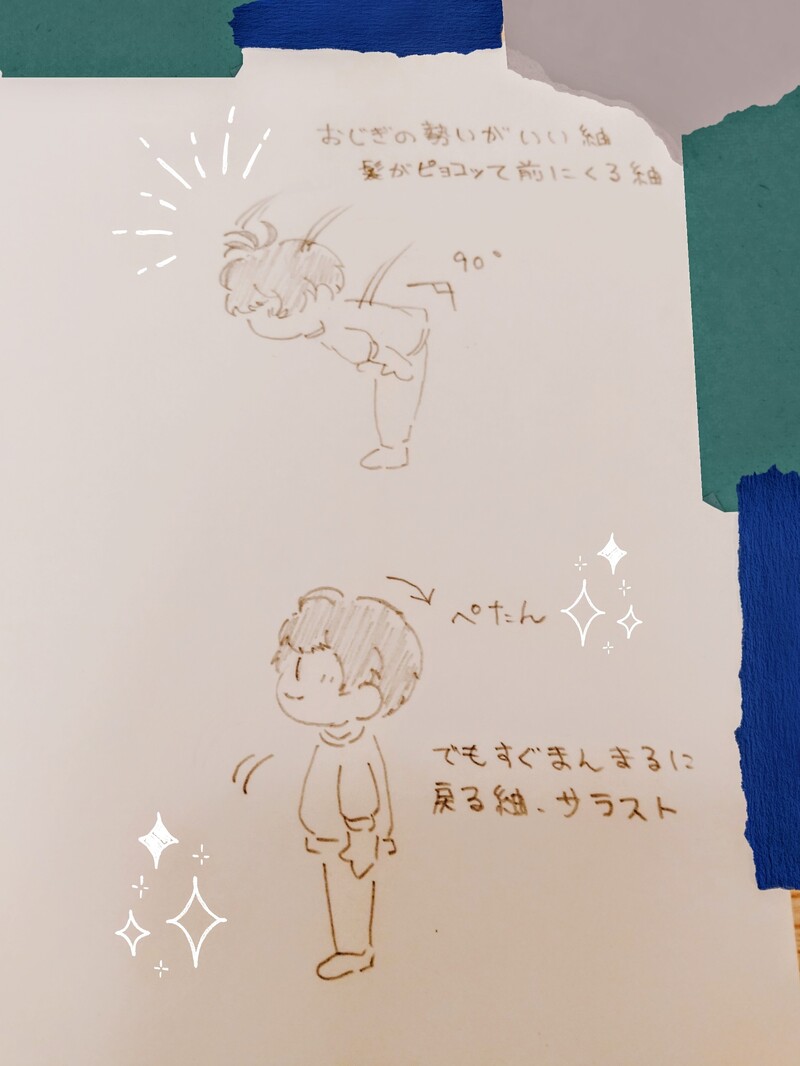 おじぎの勢いがいい紬
髪がピョコッて前にくる紬
90°
ぺたん
でもすぐまんまるに
戻る紬、サラスト